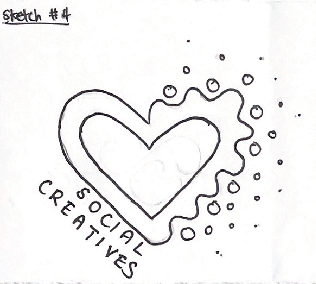 Sketch #4
SOCIAL
CREATIVES